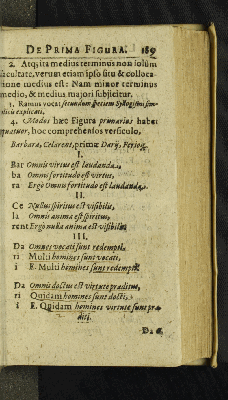 DE PRIMA FIGURA. 189
2. Atq́; ita medius terminus non ſolùm
facultate, verum etiam ipſo ſitu & colloca-
tione medius eſt: Nam minor terminus
medio, & medius majori ſubjicitur.
3. Ramus vocat ſecundam ſpeciem Syllogiſmi ſim-
plicis explicati.
4. Modos hæc Figura primarios habet
quatuor, hoc comprehenſos verſiculo,
Barbara, Celarent, primæ Darij, Ferioq́;
I.
Bar Omnis virtus eſt laudanda.
ba Omnis fortitudo eſt virtus,
ra Ergò Omnis fortitudo eſt laudanda.
II.
Ce Nullus ſpiritus eſt viſibilis,
la Omnis anima eſt ſpiritus,
rent Ergò nulla anima eſt viſibilis.
III.
Da Omnes vocati ſunt redempti.
ri Multi homines ſunt vocati,
i E. Multi homines ſunt redempti.
Da Omnis doctus eſt virtute præditus,
ri Quidam homines ſunt docti,
i E. Quidam homines virtute ſunt præ-
diti.